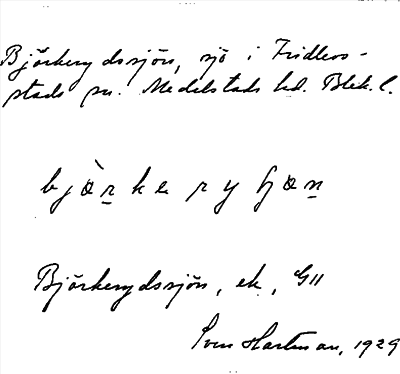 Björkerydssjön, sjö i Fridlevs-
stads sn. Medelstads hd. Blek. l.
bjò̱rkeryʃøn
Björkerydssjön, ek, G11
Sven Hartman, 1929